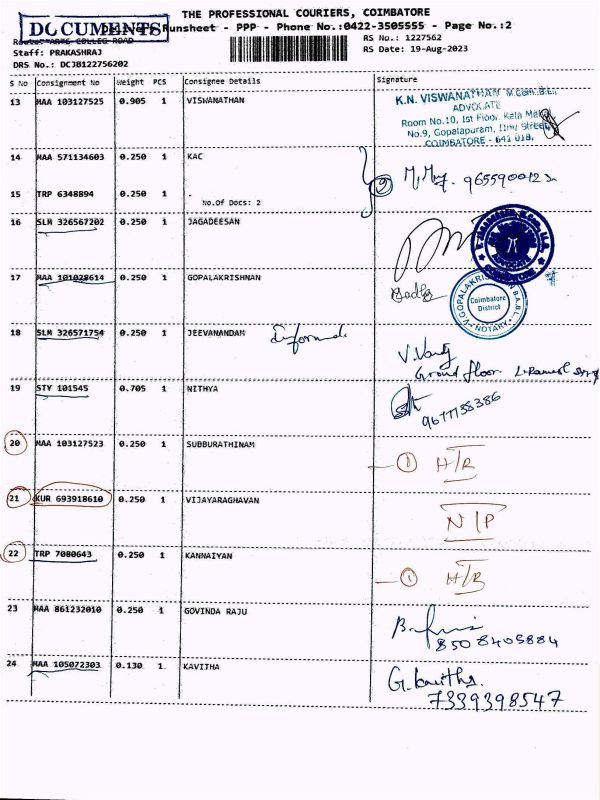 THE PROFESSIONAL COURIERS, COIMBATORE
DOCUMENTS
Runsheet - PPP - Phone No.:0422-3505555 - Page No.:2
Route: ARTS COLLEG ROAD
RS No.: 1227562
Staff: PRAKASHRAJ
RS Date: 19-Aug-2023
DRS No.: DCJB122756202
S No Consignment No Weight PCS Consignee Details Signature
13 MAA 103127525 0.905 1 VISWANATHAN
K.N. VISWANATHAN M.Com.B.L.
ADVOCATE
Room No.10, 1st Floor, Kala
No.9, Gopalapuram, IInd Street
COIMBATORE - 641 018.
14 MAA 571134603 0.250 1 KAC
15 TRP 6348894 0.250 1 -
No.Of Docs: 2
2
9655900123
16 SLM 326567202 0.250 1 JAGADEESAN
17 MAA 101028614 0.250 1 GOPALAKRISHNAN
V.GOPALAKRISHNAN B.A.B.L.
Coimbatore
District
NOTARY
18 SLM 326571754 0.250 1 JEEVANANDAM
Ground floor
19 STY 101545 0.705 1 NITHYA
9677738386
20 MAA 103127523 0.250 1 SUBBURATHINAM
1 H/R
21 KUR 693918610 0.250 1 VIJAYARAGHAVAN
N/P
22 TRP 7080643 0.250 1 KANNAIYAN
1 H/R
23 MAA 861232010 0.250 1 GOVINDA RAJU
8508405884
24 MAA 105072303 0.130 1 KAVITHA
G. Kavitha.
7339398547